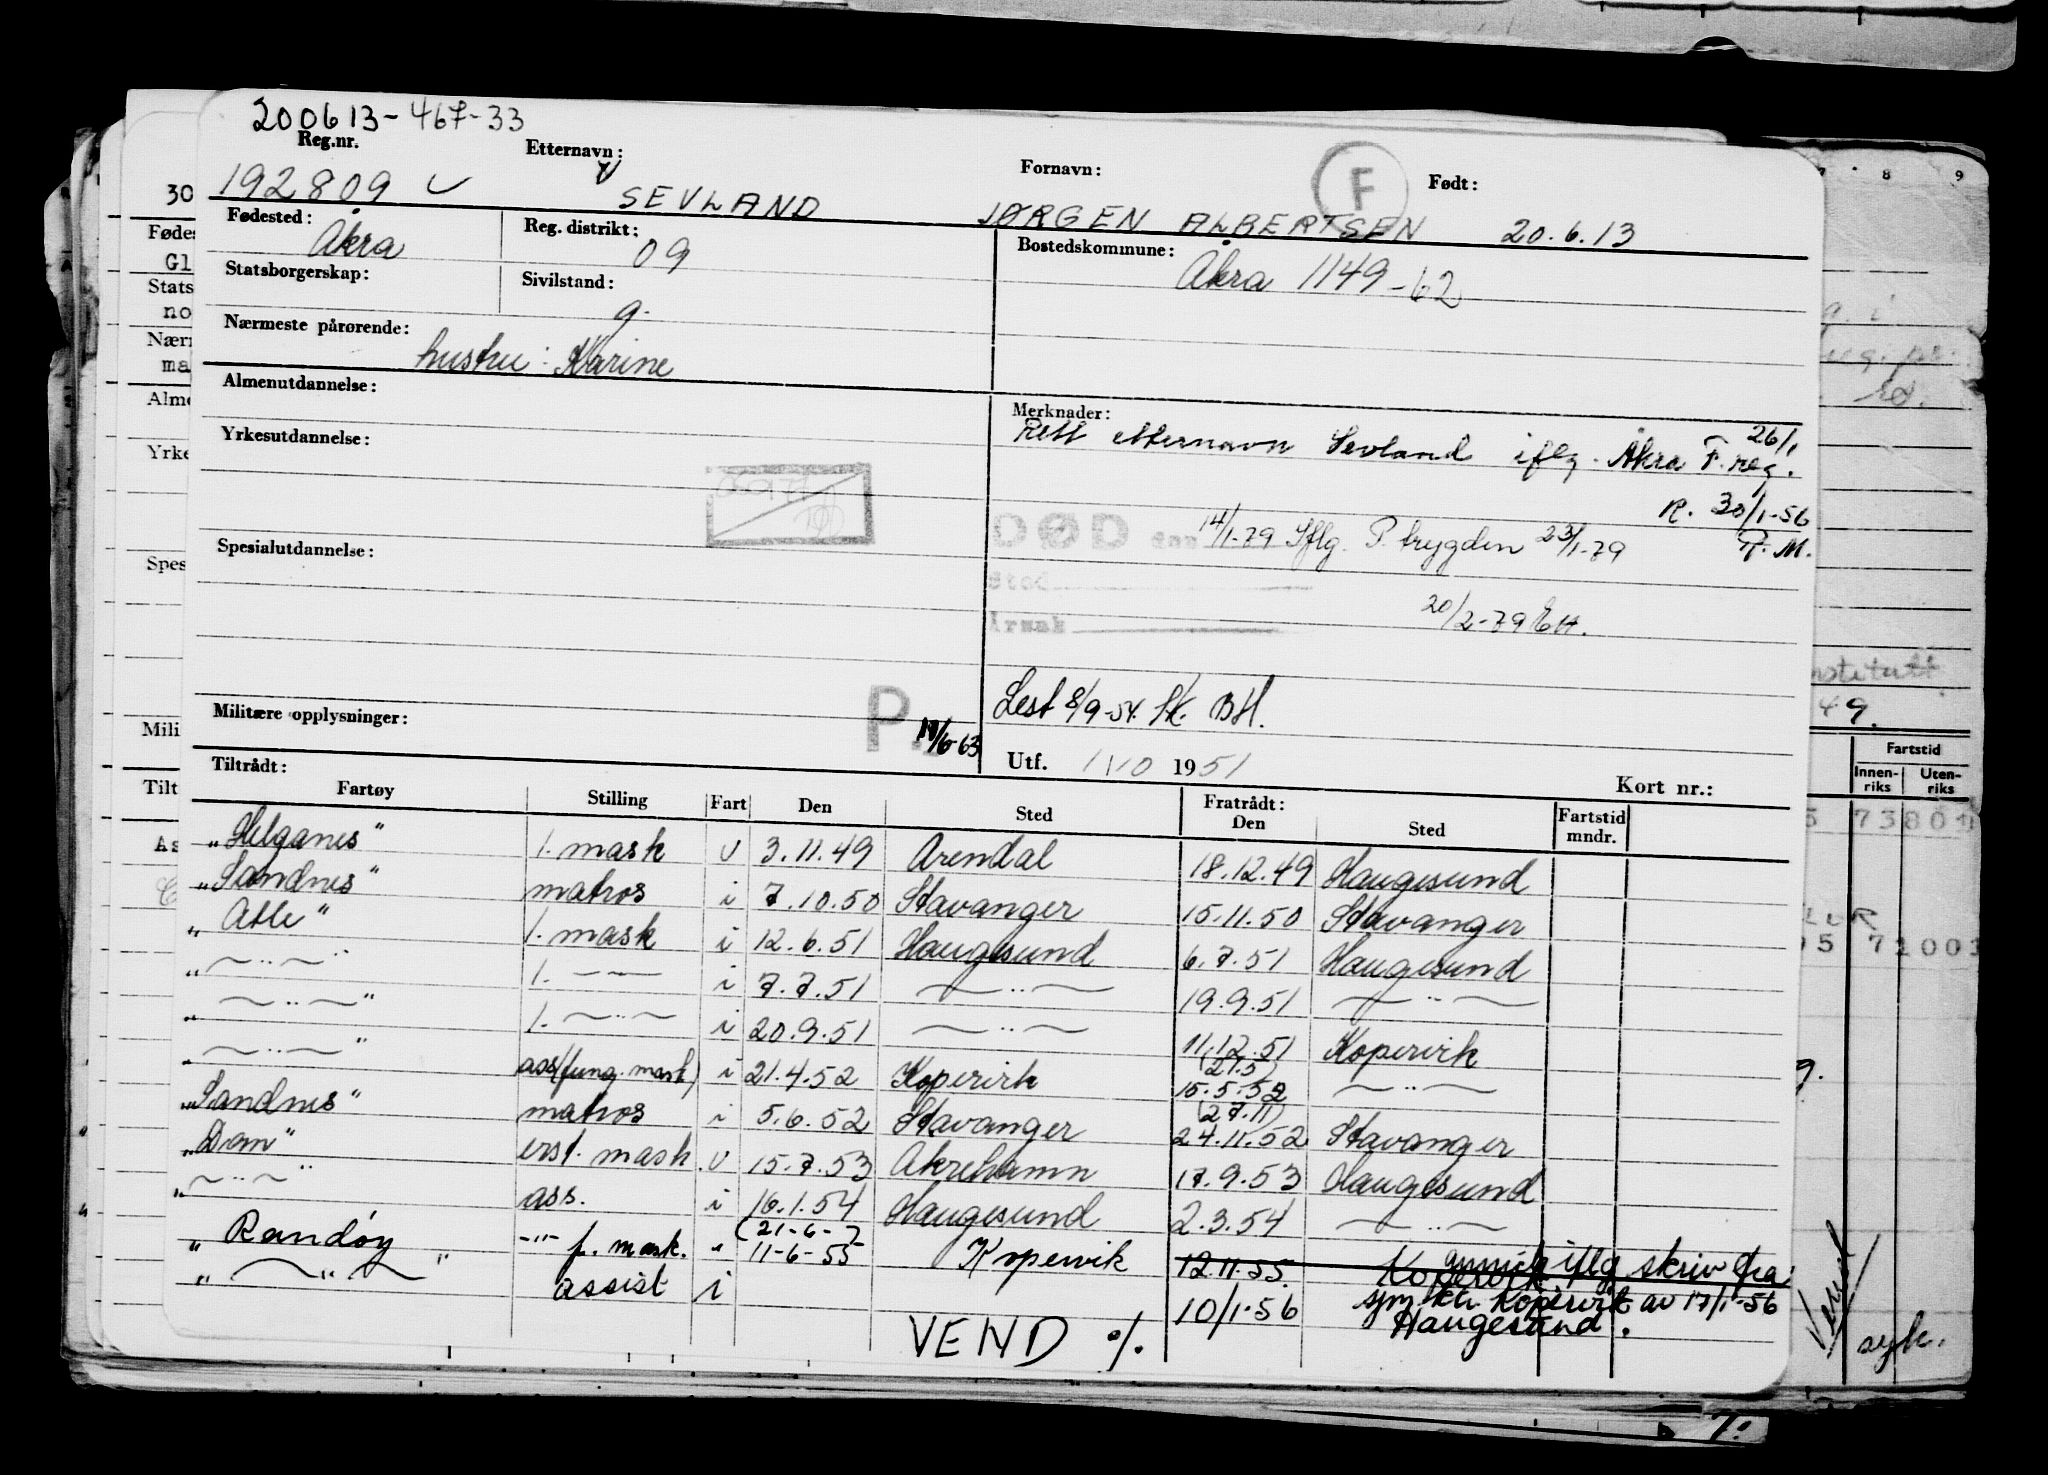 200613-467-33
Reg.nr. Etternavn: Fornavn: F Født:
192809 SEVLAND JØRGEN ALBERTSEN 20.6.13
Fødested: Reg. distrikt: Bostedskommune:
Åkra 09 Åkra 1149-62
Statsborgerskap: Sivilstand:
g.
Nærmeste pårørende:
hustru: Karine
Almenutdannelse: Merknader:
Rett etternavn Sevland iflg. Åkra F.reg. 26/1
Yrkesutdannelse:
R. 30/1-56
DØD den 14/1-79 Iflg. P. trygden 23/1-79 R.M.
Spesialutdannelse:
Sted
20/2-79 EH.
Årsak
Lest 8/9-54. Sk. BH.
Militære opplysninger: P. 11/6-63
Utf. 1/10 1951
Tiltrådt: Kort nr.:
Fartøy Stilling Fart Den Sted Fratrådt: Den Sted Fartstid mndr.
"Helganes" 1. mask u 3.11.49 Arendal 18.12.49 Haugesund
"Sandnes" matros i 7.10.50 Stavanger 15.11.50 Stavanger
"Atle" 1. mask i 12.6.51 Haugesund 6.7.51 Haugesund
" —〃— " 1. —— i 7.7.51 —〃— 19.9.51 —〃—
" —〃— " 1. —〃— i 20.9.51 —〃— 11.12.51 Kopervik
" —〃— " ass(fung. mask) i 21.4.52 Kopervik (21.5) 15.5.52 —〃—
"Sandnes" matros i 5.6.52 Stavanger (27.11) 24.11.52 Stavanger
"Dam" erst. mask. u 15.7.53 Åkrehamn 17.9.53 Haugesund
" —〃— " ass. i 16.1.54 Haugesund 2.3.54 —〃—
"Randøy" -"- f. mask. " (21-6-) 11-6-55 Kopervik 12.11.55 Kopervik iflg. skriv fra
" —〃— " assist i 10/1-56 sjm. ktr. Kopervik av 17/1-56
Haugesund.
VEND %.
30
Fødes
Gl
Stats
no
Nærm
ma
Alme
Yrke
Spes
Mili
Tilt
As
8 9
49.
Fartstid
Innen-riks Uten-riks
5 73801
05 71001
9.
syk.
7.